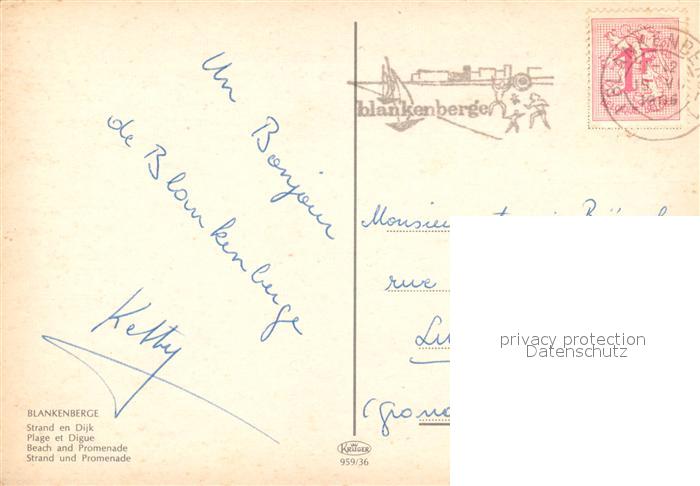 Un Bonjour
de Blankenberge
Ketty
BLANKENBERGE
Strand en Dijk
Plage et Digue
Beach and Promenade
Strand und Promenade
KRÜGER
959/36
blankenberge
1F
Monsieur
rue
privacy protection
Datenschutz